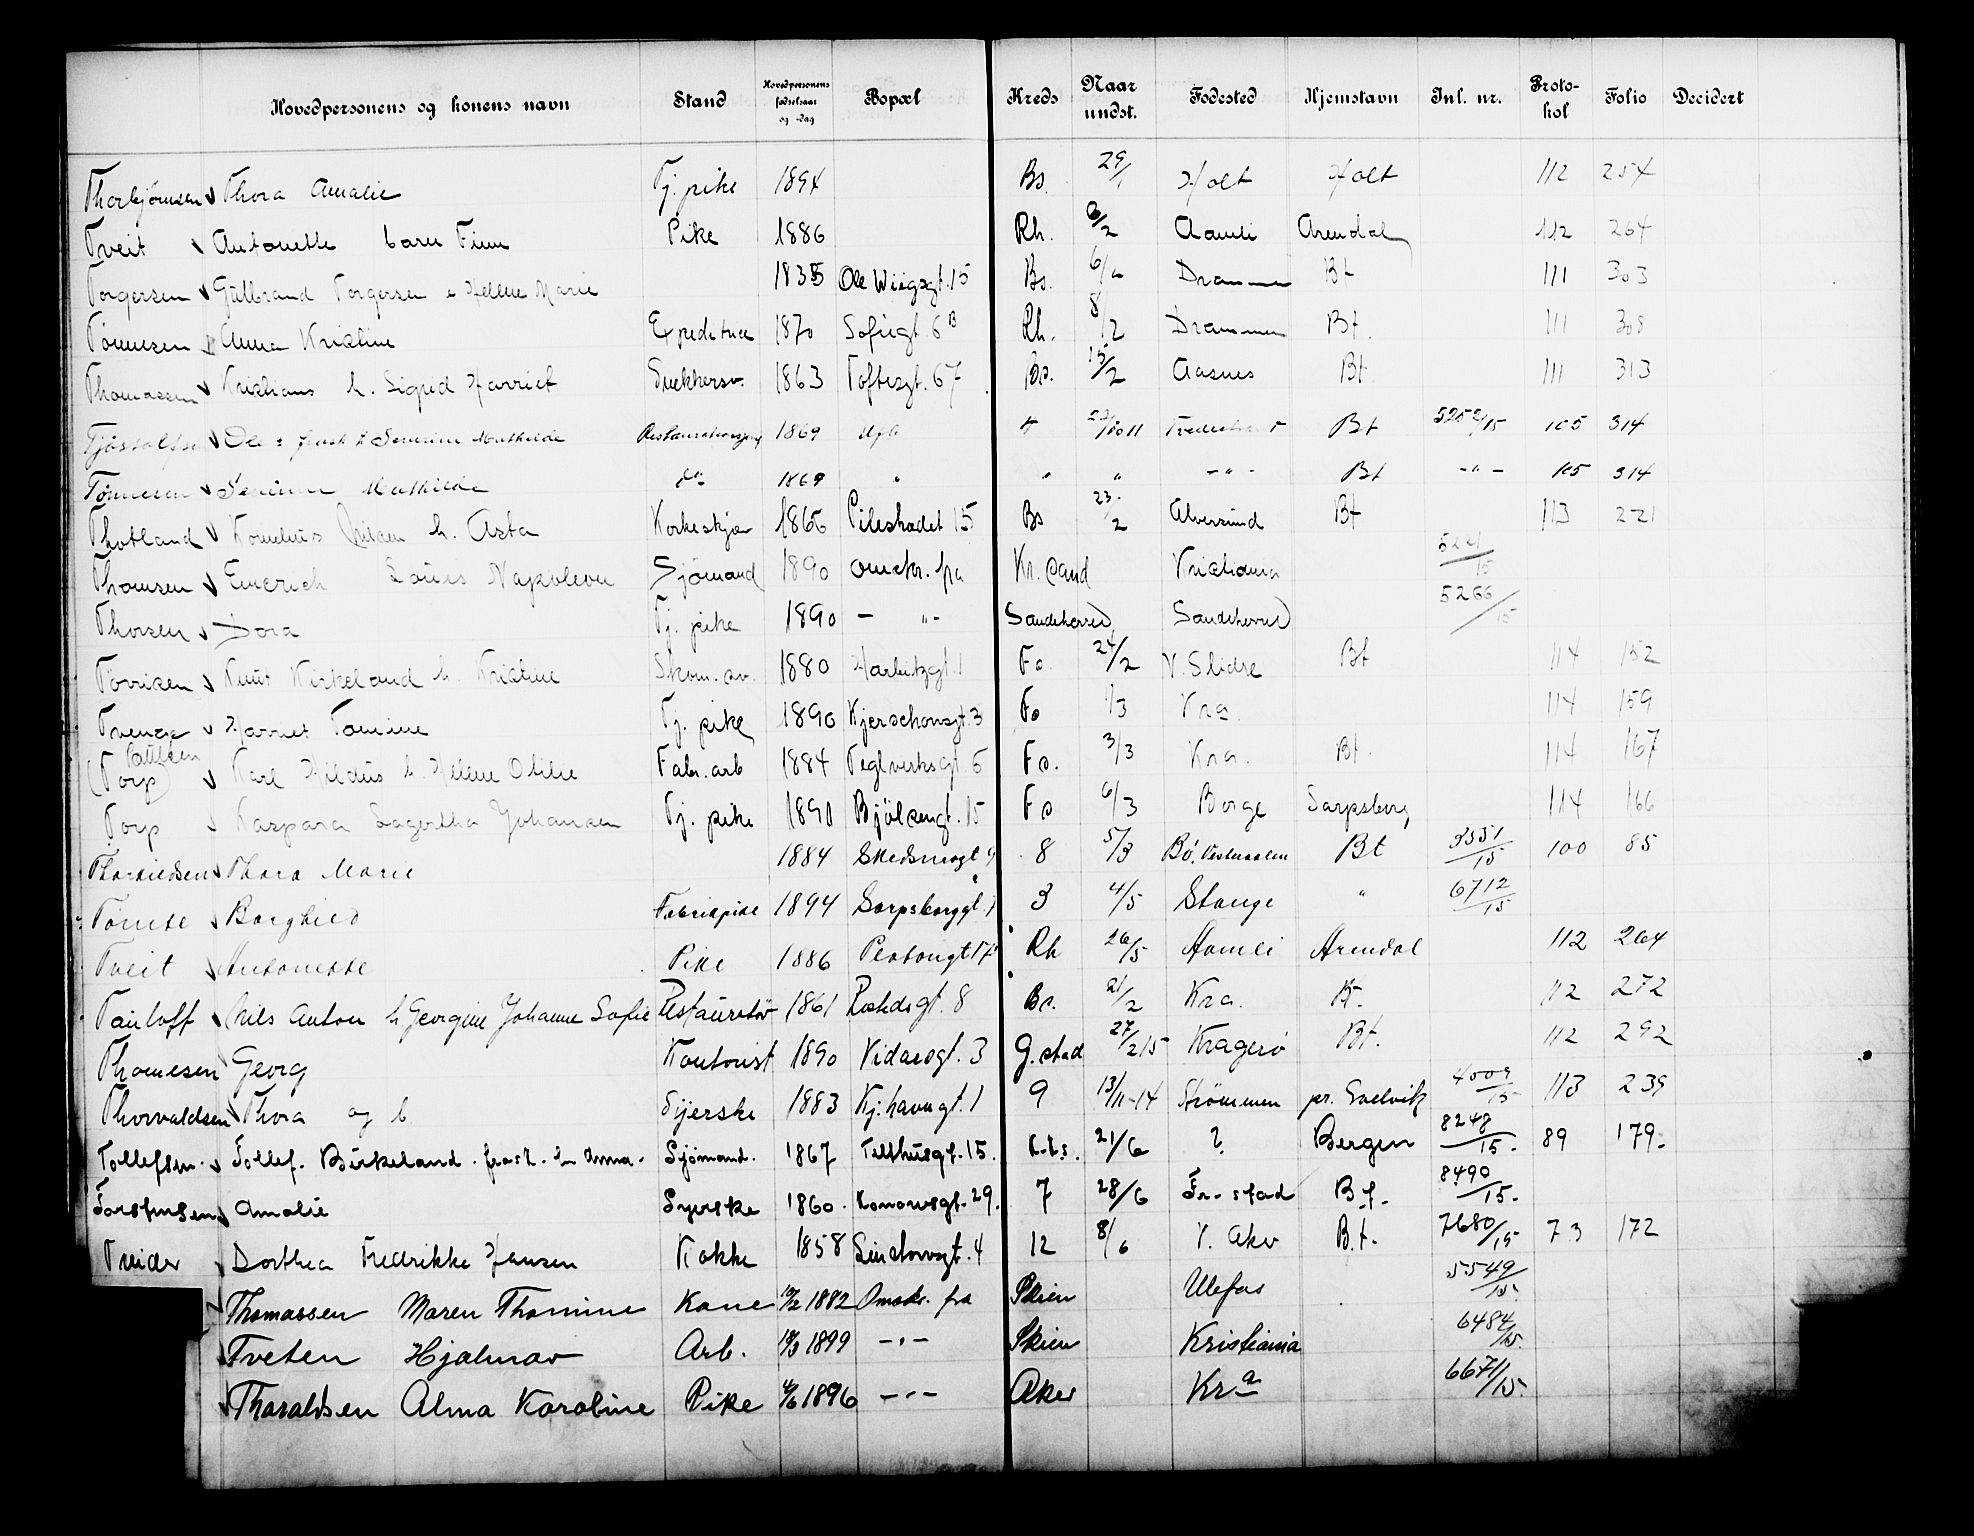 Hovedpersonens og konens navn Stand Hovedpersonens fødselsaar og -dag Bopæl Kreds Naar undst. Fødested Hjemstavn Inl. nr. Protokol Folio Decidert
Thorbjørnsen Thora Amalie Tj. pike 1894 Bs. 29/1 Holt Holt 112 254
Tveit Antonette barn Finn Pike 1886 Rh. 6/2 Aamli Arendal 112 264
Torgersen Gulbrand Torgersen e Hellene Marie 1835 Ole Wiigsgt. 15 Bs. Drammen Bt 111 303
Tønnesen Anna Kristine Expeditrice 1870 Sofiegt 6B Rh. 8/2 Drammen Bt. 111 308
Thomassen Kristians h. Sigrid Harriet Snekkersv. 1863 Toftesgt. 67 Bs. 15/2 Aasnes Bt 111 313
Ole frask h Severine Mathilde 1869 Bt 105 314
Tønnesen Severine Mathilde do 1869 " " " - " - Bt - " - 105 314
Thotland Kornelius Nilsen h. Asta Korkeskjær 1866 Pilestrædet 15 Bs 23/2 Alversund Bt 113 221
Thomsen Emerich Louis Napoleon Sjømand 1890 omskr. fra Kr. sand Kristiania 5221/15
Thorsen Dora Tj. pike 1890 - " - Sandeherred Sandeherred 5266/15
Knut Kirkeland h. Kristine Skom. sv. 1880 Harbitzgt. 1 Fo. 24/2 V. Slidre Bt 114 152
Harriet Tomine Tj. pike 1890 Kjerschowsgt. 3 Fo 1/3 Kra. 114 159
(Torp) Paulsen Karl Hildus h. Hellene Otilie Fabr. arb 1884 Teglverksgt 6 Fo. 3/3 Kra. Bt. 114 167
Torp Kaspara Lagertha Johansen Tj. pike 1890 Bjølsengt. 15 Fo 6/3 Borge Sarpsborg 114 166
Thora Marie 1884 Skedsmogt 8 5/3 Bø, Vesteraalen Bt 3551/15 100 85
Tomte Borghild Fabrikpike 1894 Sarpsborggt. 1 3 4/5 Stange " 6712/15
Tveit Antonette Pike 1886 Platousgt 17 Rh 26/5 Aamli Arendal 112 264
Tauloff Nils Anton h Georgine Johanne Sofie Restauratør 1861 Rostedsgt. 8 Bs. 21/2 Kra. Bt. 112 272
Thomesen Georg Kontorist 1890 Vidarsgt. 3 G. stad 27/2 15 Kragerø Bt. 112 292
Thorvaldsen Thora og b Syerske 1883 Kj.havngt. 1 9 13/11-14 Strømmen pr. Svelvik 4009/15 113 239
Tollefsen Tollef. Birkeland. frask. h Anna. Sjømand. 1867 Telthusgt. 15. 21/6 ? Bergen 8248/15. 89 179.
Torstensen Amalie Syerske 1860. Konowsgt. 29. 7 28/6 Fr-stad Bt. 8490/15.
Treider Dorthea Fredrikke Hansen Kokke 1858 Lindtowsgt. 4 12 8/6 V. Aker B.t. 7680/15 73 172
Thomassen Maren Thomine Kone 1882 Omskr. fra Skien Ulefos 5549/15.
Tveten Hjalmar Arb. 1899 - " - Skien Kristiania 6484/15.
Tharaldsen Alma Karoline Pike 4/6 1896 - " - Aker Kra 6671/15.